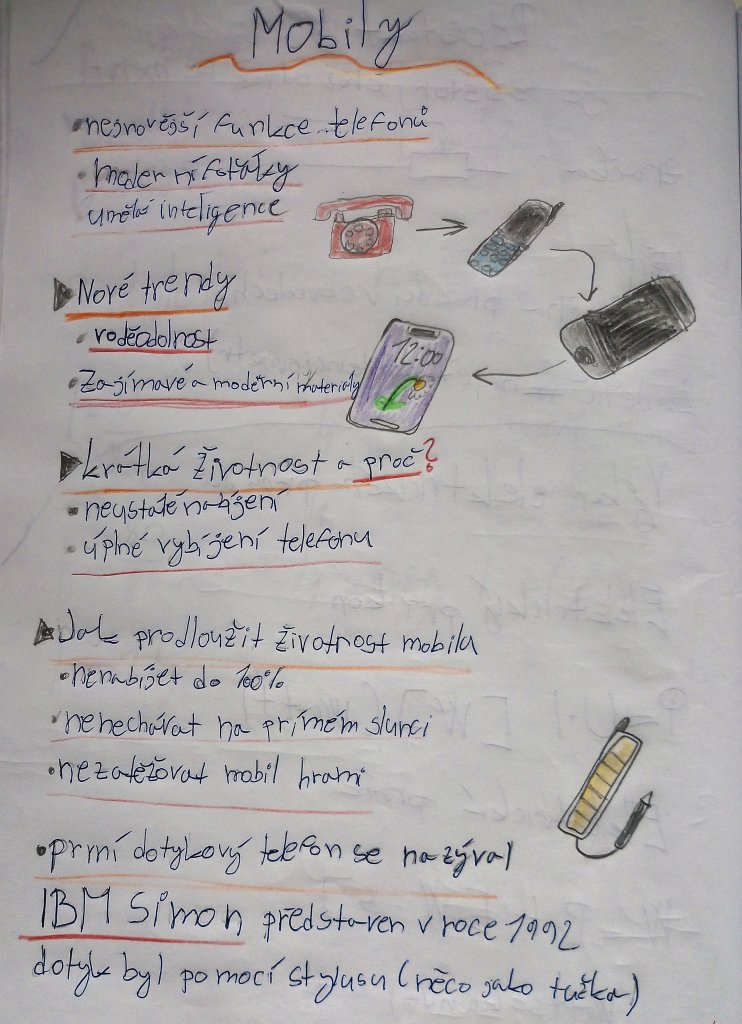 Mobily
• nejnovější funkce telefonů
• moderní foťáky
umělá inteligence
Nové trendy
• voděodolnost
• Zajímavé a moderní materiály
12:00
krátká životnost a proč?
• neustálé nabíjení
• úplné vybíjení telefonu
Jak prodloužit životnost mobilu
• nenabíjet do 100%
• nenechávat na přímém slunci
• nezatěžovat mobil hrami
• první dotykový telefon se nazýval
IBM Simon představen v roce 1992
dotyk byl pomocí stylusu (něco jako tužka)